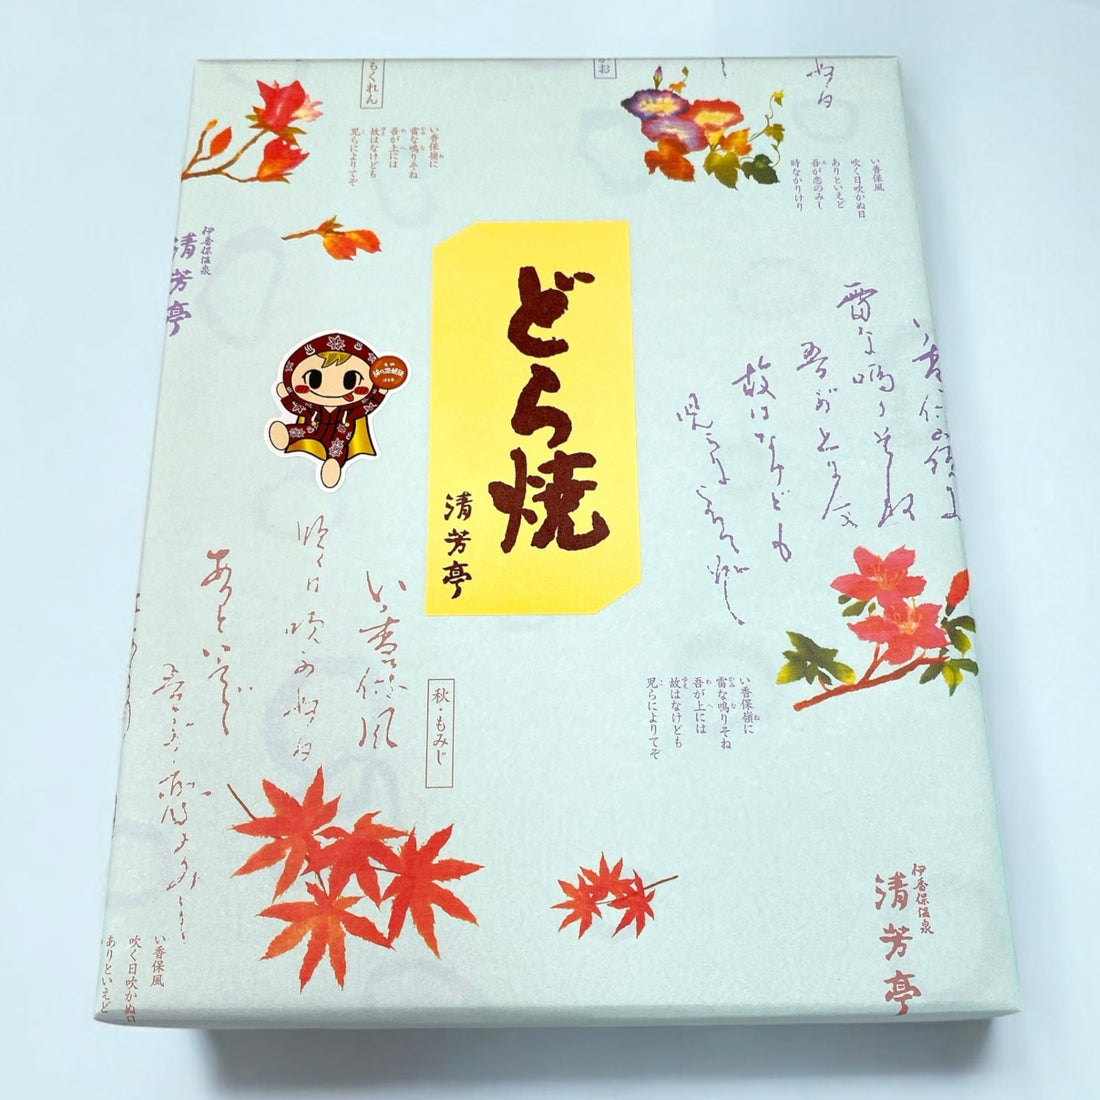 もくれん
い香保嶺に
雷な鳴りそね
吾が上には
故はなけども
児らによりてぞ
い香保風
吹く日吹かぬ日
ありといえど
吾が恋のみし
時なかりけり
伊香保温泉
清芳亭
どら焼
清芳亭
い香保嶺に
雷な鳴りそね
吾が上には
故はなけども
児らによりてぞ
い香保風
吹く日吹かぬ日
ありといえど
秋・もみじ
い香保嶺に
雷な鳴りそね
吾が上には
故はなけども
児らによりてぞ
伊香保温泉
清芳亭
い香保風
吹く日吹かぬ日
ありといえど